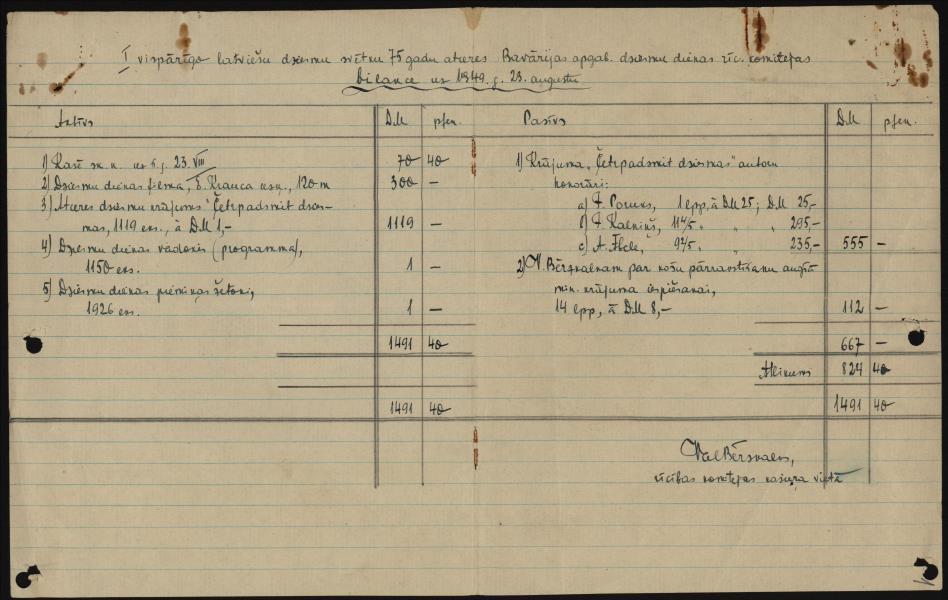 I vispārīgo latviešu dziesmu svētku 75 gadu atceres Bavārijas apgab. dziesmu dienas rīc. komitejas
bilance uz 1949. g. 23. augustu
Aktīvs D.M pfen. Pasīvs D.M pfen.
1) Kasē sk. n. uz š. g. 23. VIII 70 40
2) Dziesmu dienas filma, E. Krauca uzņ., 120 m 300 —
3) Atceres dziesmu krājums "Četrpadsmit dzies-
mas, 1119 eks., à D.M 1,- 1119 —
4) Dziesmu dienas vadonis (programma),
1150 eks. 1 —
5) Dziesmu dienas piemiņas žetoni,
1926 eks. 1 —
1491 40
1491 40
1) Krājuma „Četrpadsmit dziesmas" autoru
honorāri:
a) J. Poruks, 1 lpp, à D.M 25; D.M 25,-
b) J. Kalniņš, 11 4/5 " " " 295,-
c) A. Ābele, 9 2/5 " " 235,- 555 —
2) V. Bērzkalnam par nošu pārrakstīšanu augšā
min. krājuma iespiešanai,
14 lpp, à D.M 8,- 112 —
667 —
Atlikums 824 40
1491 40
Val Bērzkalns,
rīcības komitejas kasiera vietā